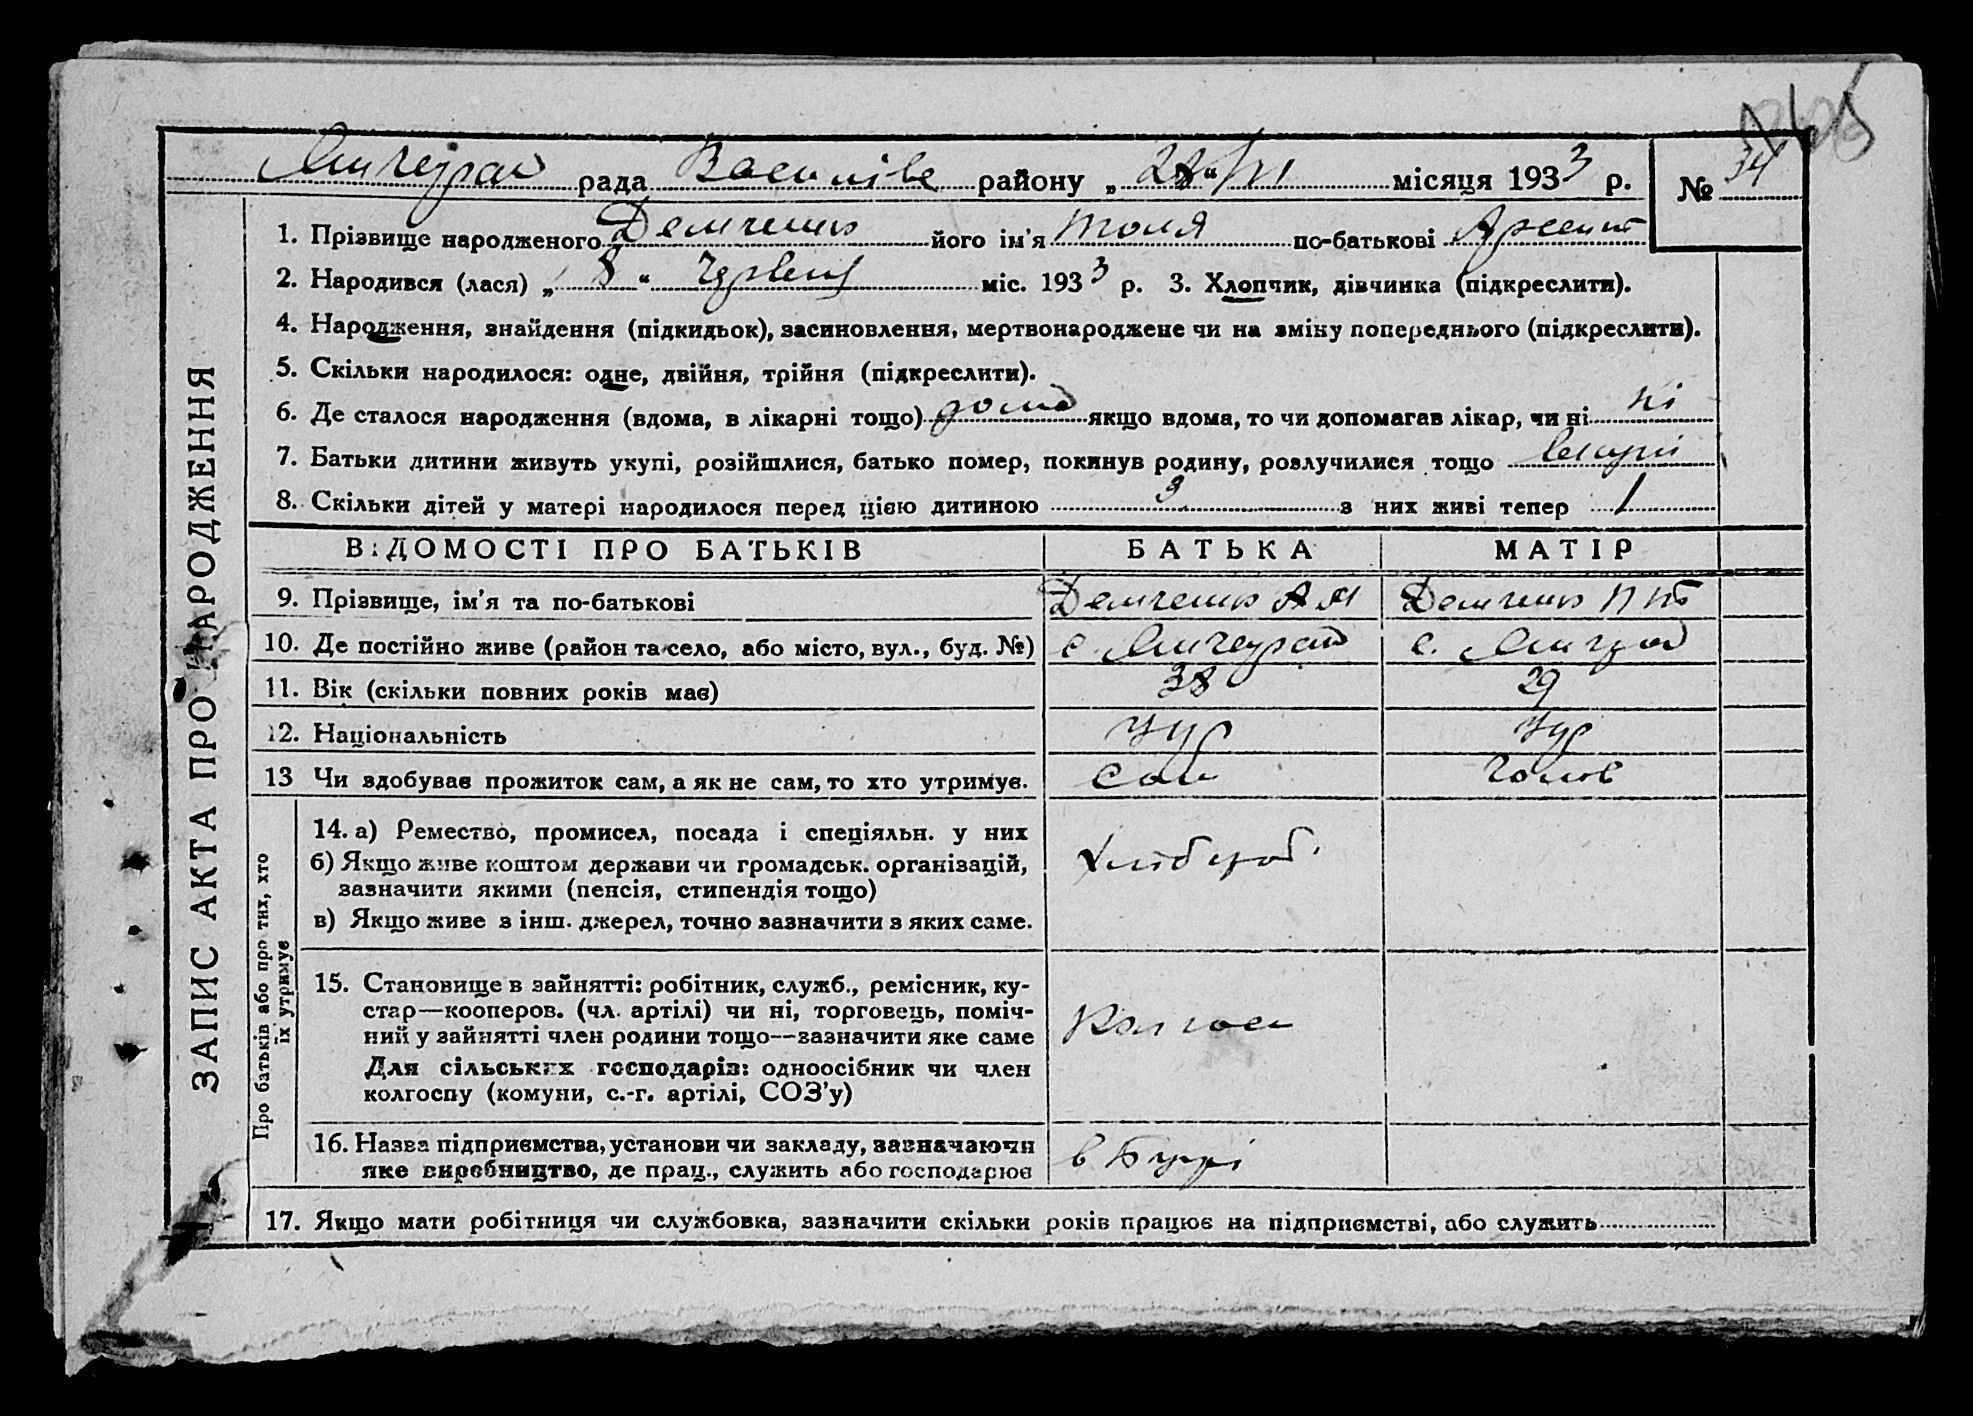 рада Василівс району „28“ VI місяця 1933 р. № 34
1. Прізвище народженого Демченко його ім'я Толя по-батькові Арсент
2. Народився (лася) „8“ Червня міс. 1933 р. 3. Хлопчик, дівчинка (підкреслити).
4. Народження, знайдення (підкидьок), засиновлення, мертвонароджене чи на зміну попереднього (підкреслити).
5. Скільки народилося: одне, двійня, трійня (підкреслити).
6. Де сталося народження (вдома, в лікарні тощо) дома якщо вдома, то чи допомагав лікар, чи ні ні
7. Батьки дитини живуть укупі, розійшлися, батько помер, покинув родину, розлучилися тощо вкупі
8. Скільки дітей у матері народилося перед цією дитиною 3 з них живі тепер 1
ЗАПИС АКТА ПРО НАРОДЖЕННЯ
ВІДОМОСТІ ПРО БАТЬКІВ БАТЬКА МАТІР
9. Прізвище, ім'я та по-батькові Демченко А М Демченко П
10. Де постійно живе (район та село, або місто, вул., буд. №) с. с.
11. Вік (скільки повних років має) 38 29
12. Національність укр укр
13 Чи здобуває прожиток сам, а як не сам, то хто утримує. Сам Чолов
Про батьків або про тих, хто
їх утримує
14. а) Ремество, промисел, посада і спеціяльн. у них
б) Якщо живе коштом держави чи громадськ. організацій,
зазначити якими (пенсія, стипендія тощо)
Хлібороб.
в) Якщо живе з інш. джерел, точно зазначити з яких саме.
15. Становище в зайнятті: робітник, служб., ремісник, ку-
стар—кооперов. (чл. артілі) чи ні, торговець, поміч-
ний у зайнятті член родини тощо—зазначити яке саме
Колгосп
Для сільських господарів: одноосібник чи член
колгоспу (комуни, с.-г. артілі, СОЗ'у)
16. Назва підприємства, установи чи закладу, зазначаючи
яке виробництво, де прац., служить або господарює
17. Якщо мати робітниця чи службовка, зазначити скільки років працює на підприємстві, або служить